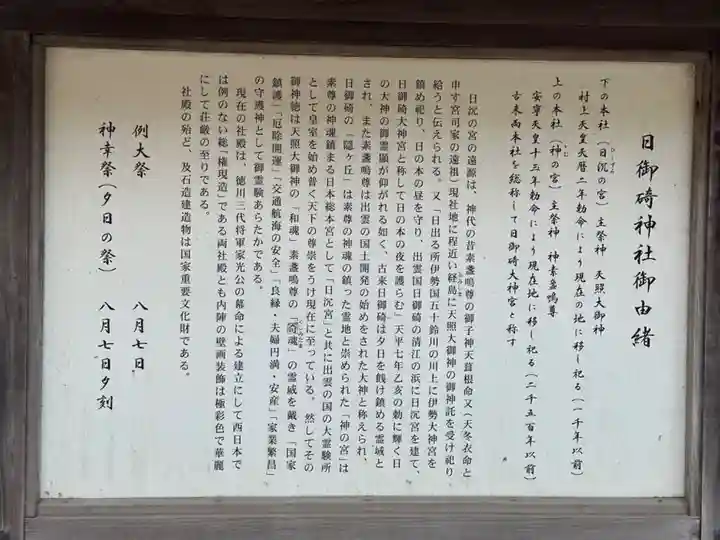 日御碕神社御由緒
下の本社（日沉の宮）主祭神　天照大御神
村上天皇天暦二年勅命により現在の地に移し祀る（一千年以前）
上の本社（神の宮）主祭神　神素盞嗚尊
安寧天皇十三年勅命により現在地に移し祀る（二千五百年以前）
古来両本社を総称して日御碕大神宮と称す
日沉の宮の遠源は、神代の昔素盞嗚尊の御子神天葺根命又（天冬衣命と
申す宮司家の遠祖）現社地に程近い経島に天照大御神の御神託を受け祀り
給うと伝えられる。又「日出る所伊勢国五十鈴川の川上に伊勢大神宮を
鎮め祀り、日の本の昼を守り、出雲国日御碕の清江の浜に日沉宮を建て、
日御碕大神宮と称して日の本の夜を護らむ」天平七年乙亥の勅に輝く日
の大神の御霊顕が仰がれる如く、古来日御碕は夕日を餞け鎮める霊域と
され、また素盞嗚尊は出雲の国土開発の始めをされた大神と称えられ、
日御碕の「隠ヶ丘」は素尊の神魂の鎮った霊地と崇められた「神の宮」は
素尊の神魂鎮まる日本総本宮として「日沉宮」と共に出雲の国の大霊験所
として皇室を始め普く天下の尊崇をうけ現在に至っている。然してその
御神徳は天照大御神の「和魂」素盞嗚尊の「奇魂」の霊威を戴き「国家
鎮護」「厄除開運」「交通航海の安全」「良縁・夫婦円満・安産」「家業繁昌」
の守護神として御霊験あらたかである。
現在の社殿は、徳川三代将軍家光公の幕命による建立にして西日本で
は例のない総「権現造」である両社殿とも内陣の壁画装飾は極彩色で華麗
にして荘厳の至りである。
社殿の殆ど、及石造建造物は国家重要文化財である。
例大祭　八月七日
神幸祭（夕日の祭）　八月七日夕刻